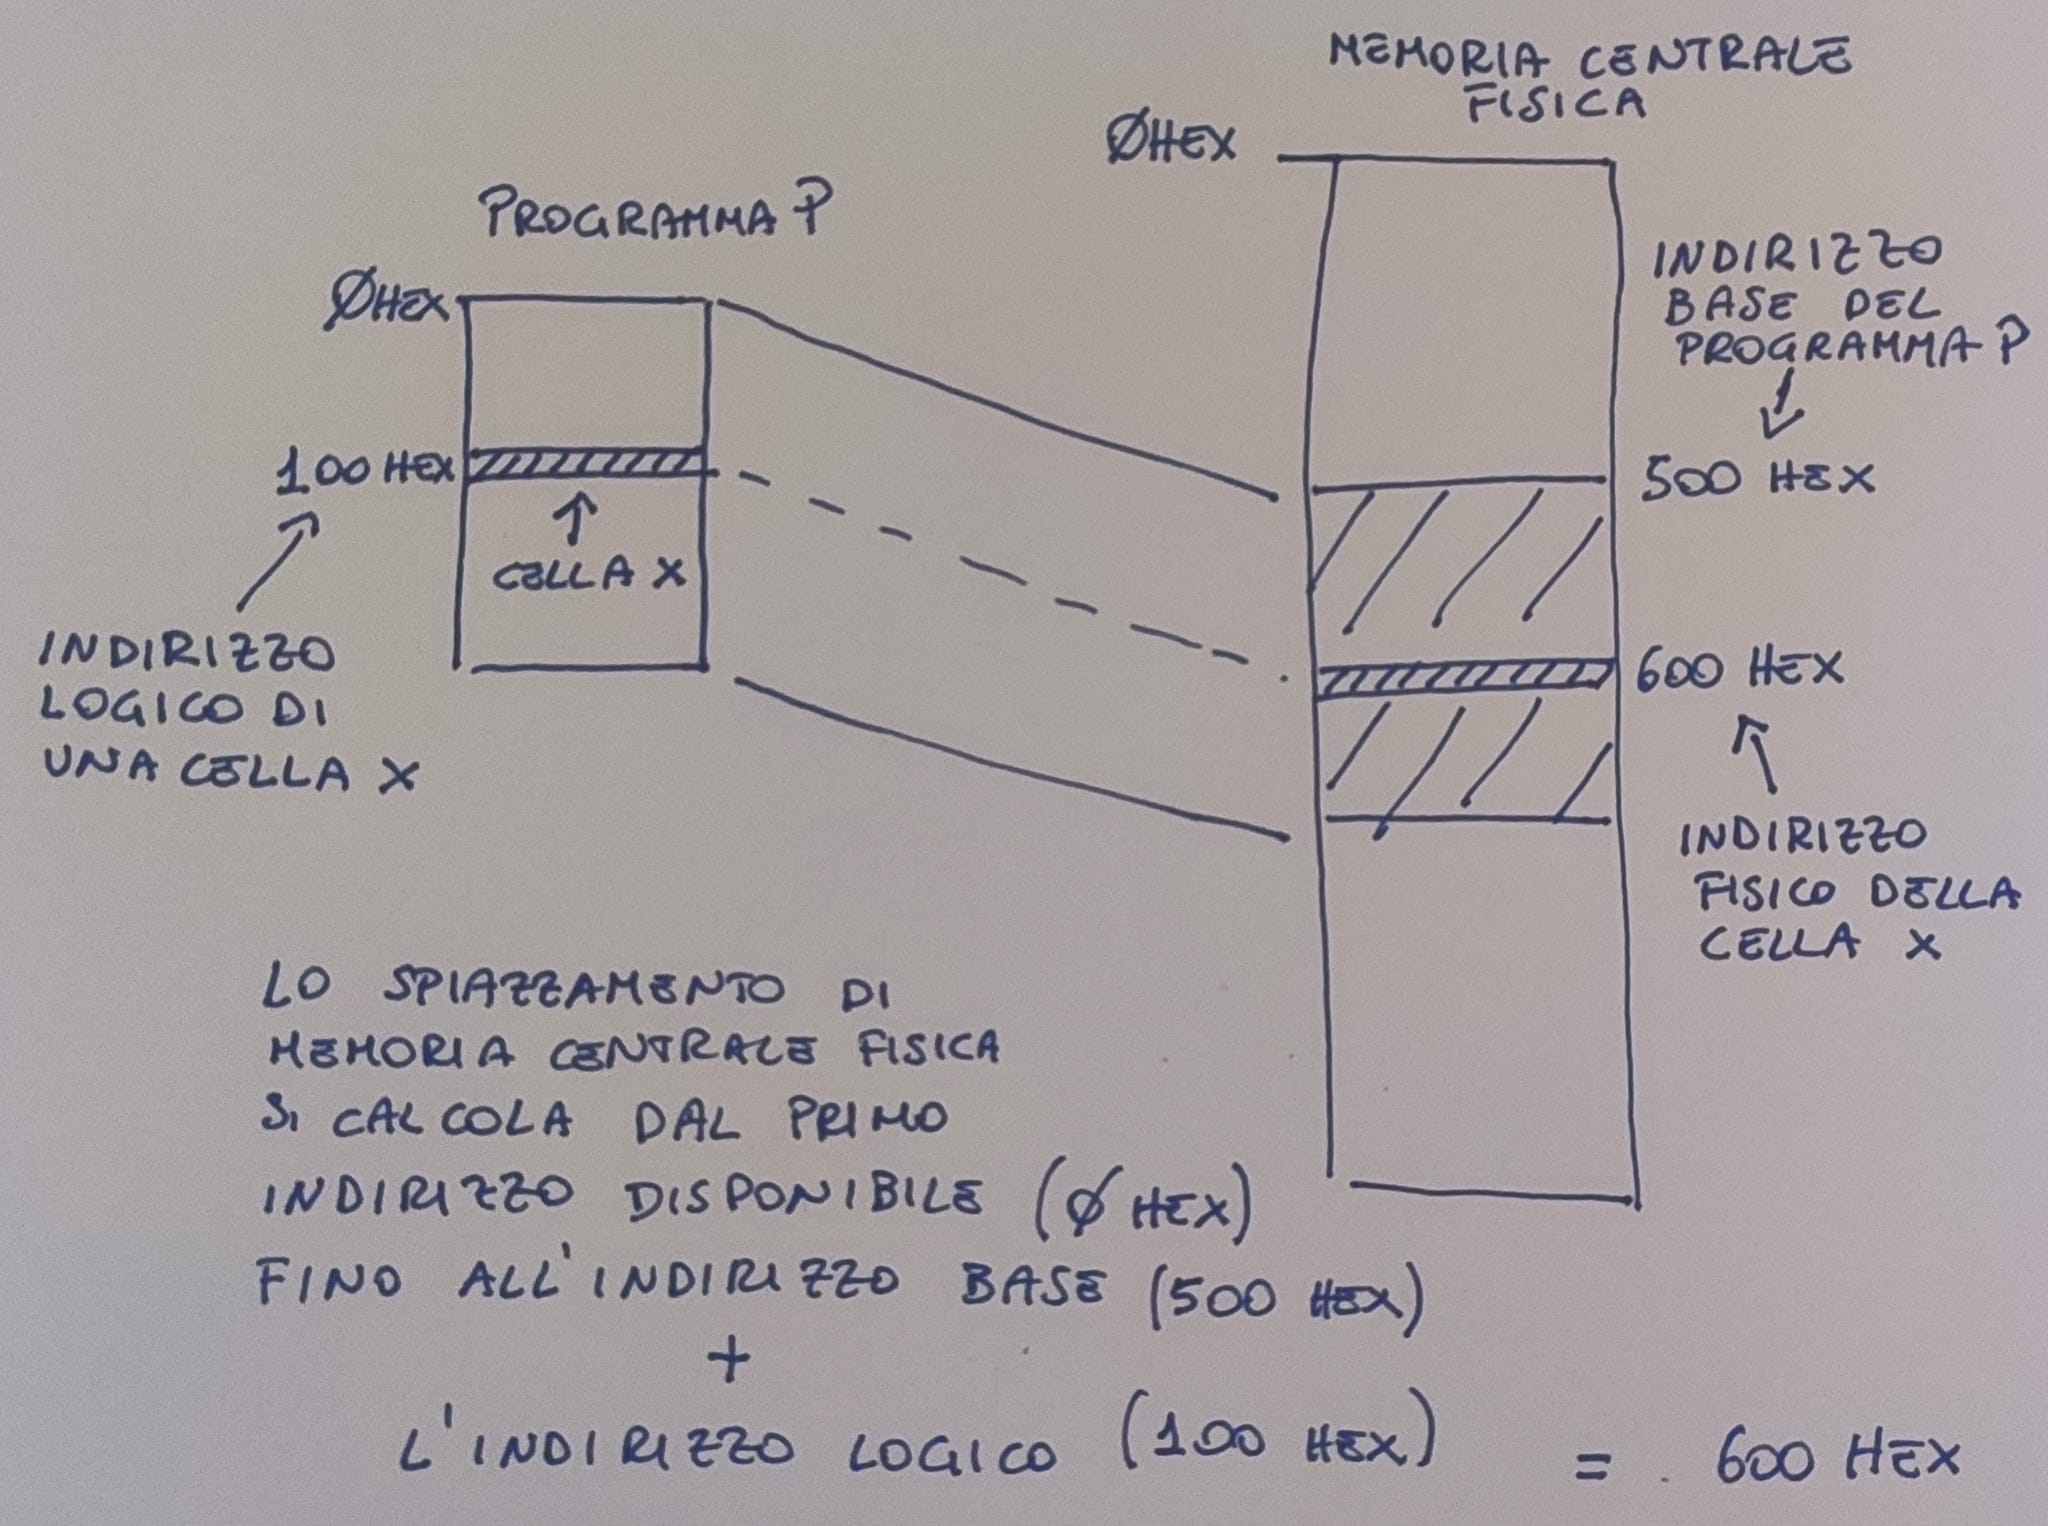 MEMORIA CENTRALE
FISICA
ØHEX
PROGRAMMA P
ØHEX
100 HEX
CELLA X
INDIRIZZO
LOGICO DI
UNA CELLA X
INDIRIZZO
BASE DEL
PROGRAMMA P
500 HEX
600 HEX
INDIRIZZO
FISICO DELLA
CELLA X
LO SPIAZZAMENTO DI
MEMORIA CENTRALE FISICA
SI CALCOLA DAL PRIMO
INDIRIZZO DISPONIBILE (Ø HEX)
FINO ALL'INDIRIZZO BASE (500 HEX)
+
L'INDIRIZZO LOGICO (100 HEX) = 600 HEX